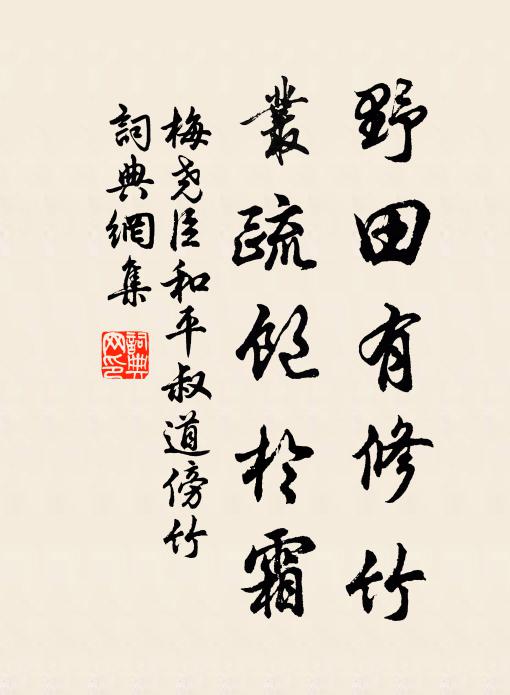 野田有修竹
叢疏飽於霜
梅堯臣和平叔道傍竹
詞典網集
詞典网印